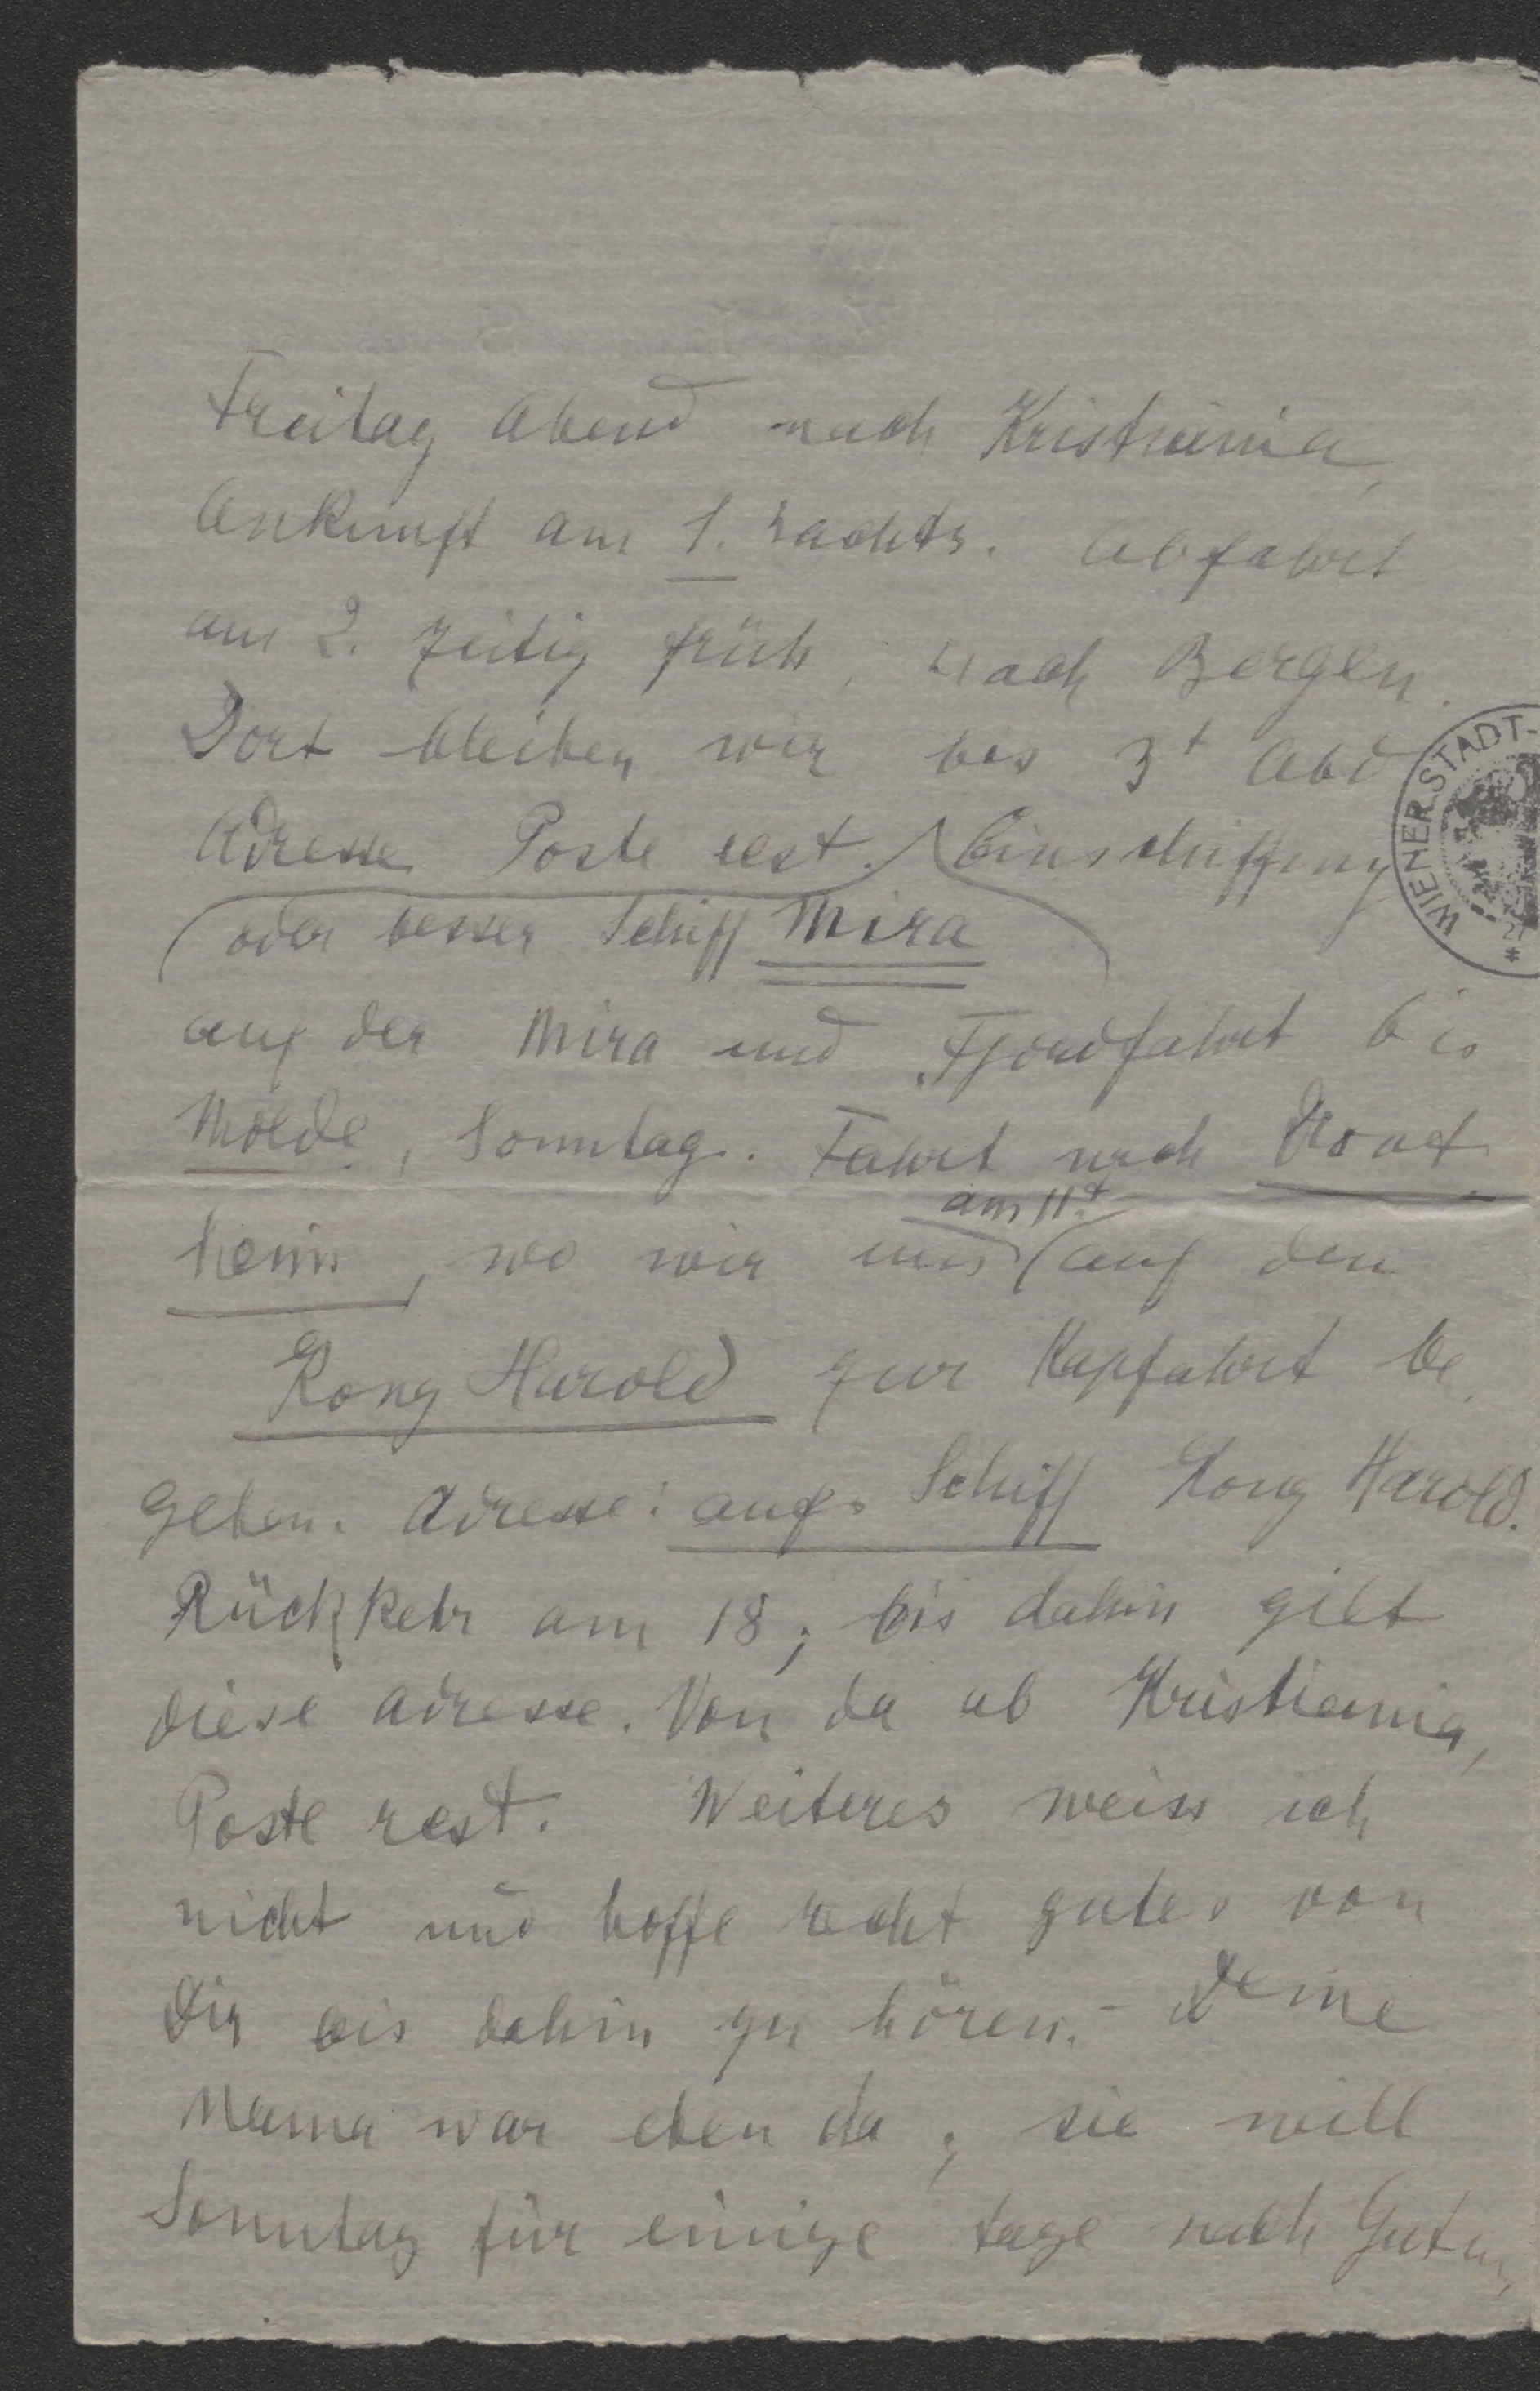 Freitag Abend nach Kristiania,
Ankunft am 1. nachts. Abfahrt
am 2. zeitig früh, nach Bergen.
Dort bleiben wir bis 3t Abd
Adresse Poste rest. Einschiffung
oder besser Schiff Mira
auf der Mira und Fjordfahrt bis
Molde, Sonntag. Fahrt nach
am 11t
heim, wo wir uns auf den
Kong Harold zur Kapfahrt be
geben. Adresse: aufs Schiff Kong Harold.
Rückkehr am 18; bis dahin gilt
diese Adresse. Von da ab Kristiania,
Poste rest. Weiteres weiss ich
nicht und hoffe recht gutes von
Dir bis dahin zu hören. – Deine
Mama war eben da; sie will
Sonntag für einige Tage nach
WIENER STADT-